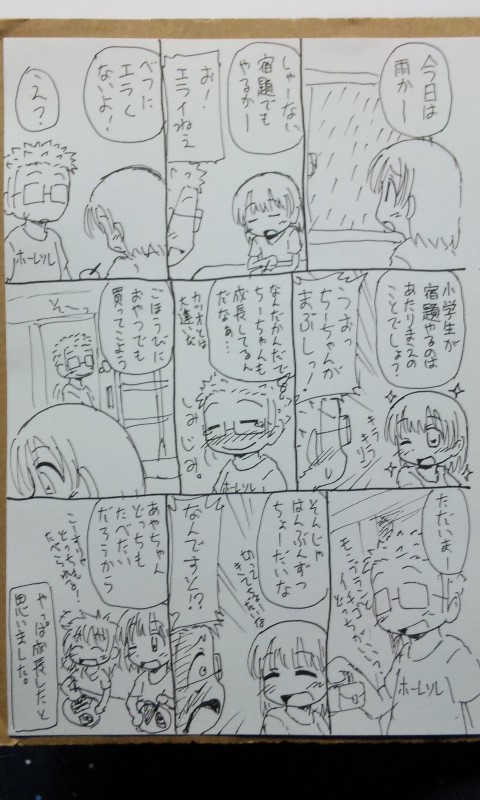 今日は
雨かー
しゃーない
宿題でも
やるかー
お！
エライねぇ
べつに
エラく
ないよ！
え？
ホーレソレ
小学生が
宿題やるのは
あたりまえの
ことでしょ？
キラ
キラ
うおっ
ちーちゃんが
まぶしっ！
なんだかんだで
ちーちゃんも
成長してるん
だなぁ…
カツオとは
大違いだ
しみじみ。
ホーレソレ
ごほうびに
おやつでも
買ってこよう
ただいまー
ホーレソレ
そんじゃ
はんぶんずつ
ちょーだいな
なんですと!?
あやちゃん
どっちも
たべたい
だろうから
こーすりゃ
どっちも
たべられる！
やっぱ成長したと
思いました。